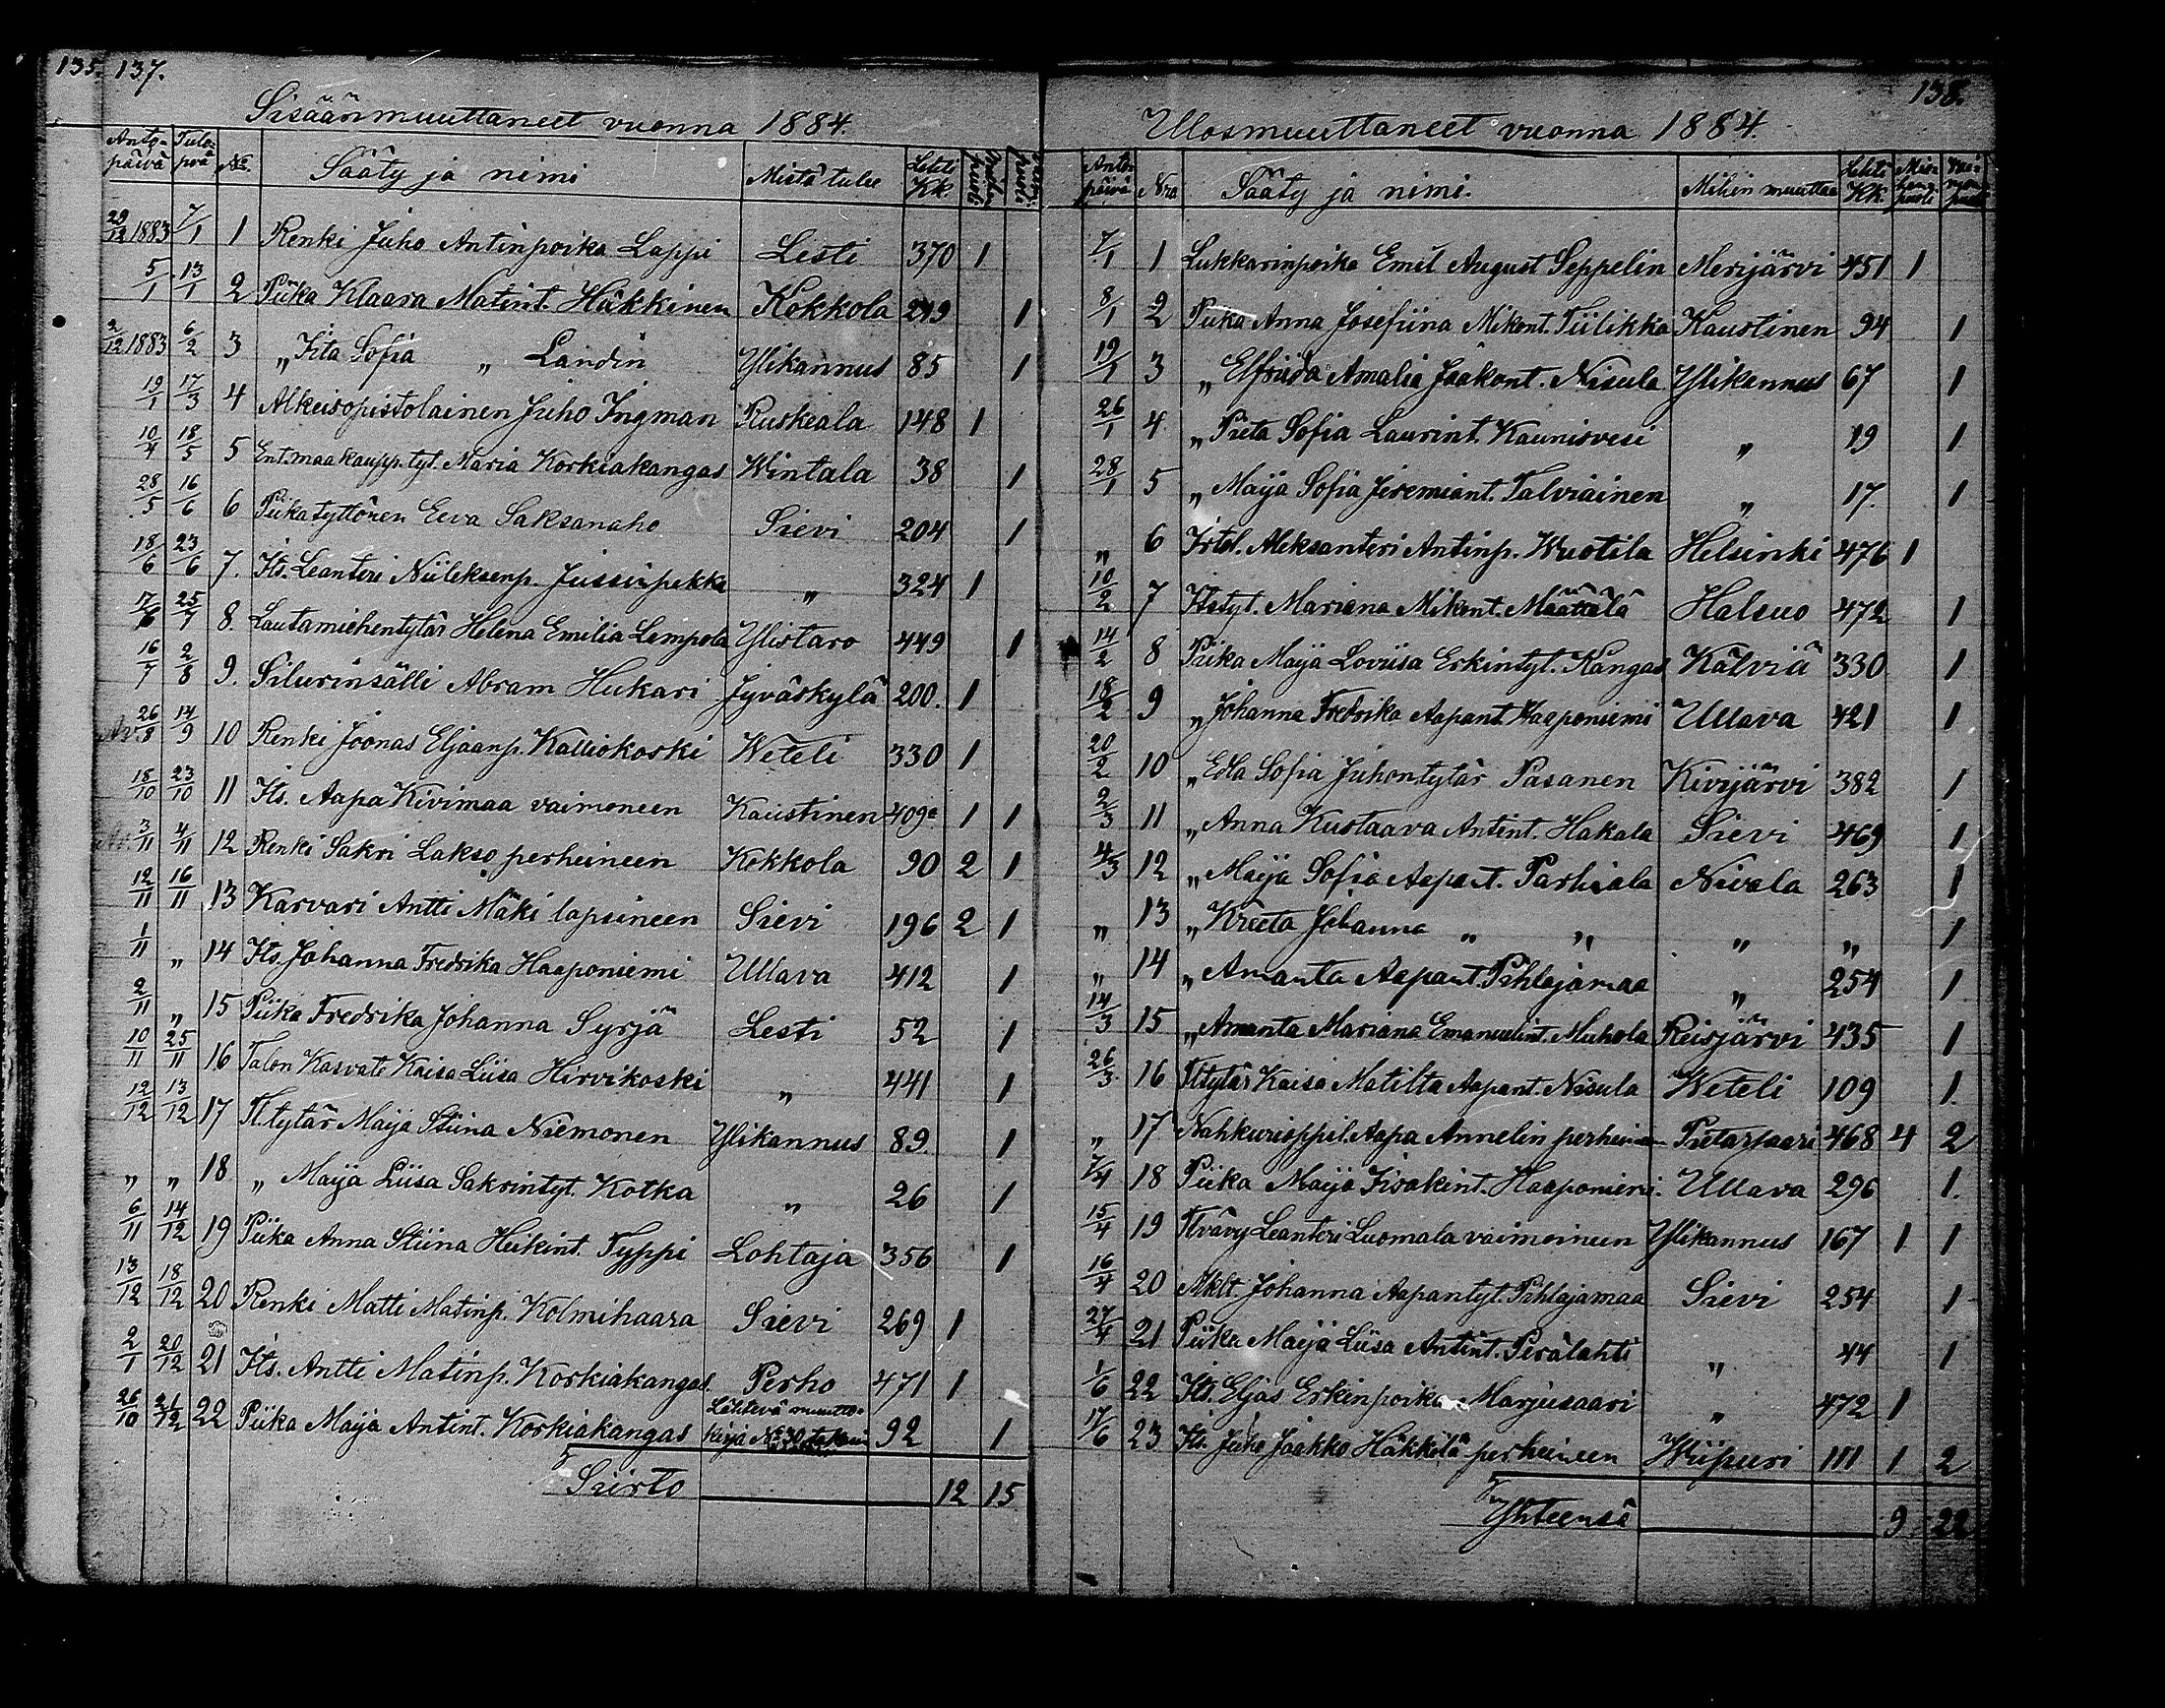 135. 137.
Sisäänmuuttaneet vuonna 1884.
Antopäivä Tulopvä No. Sääty ja nimi Mistä tulee Lehti Kk.
29/12 1883 7/1 1 Renki Juho Antinpoika Lappi Lesti 370 1
5/1 13/1 2 Piika Klaara Matint. Häkkinen Kokkola 249 1
2/12 1883 6/2 3 „ Iita Sofia „ Landin Ylikannus 85 1
19/1 17/3 4 Alkeisopistolainen Juho Ingman Ruskeala 148 1
10/4 18/5 5 Ent. maakaupp. tyt. Maria Korkiakangas Wintala 38 1
28/5 16/6 6 Piika tyttönen Eeva Saksanaho Sievi 204 1
18/6 23/6 7. Its. Leanteri Niileksenp. Jussinpekka „ 324 1
17/6 25/7 8. Lautamiehentytär Helena Emilia Lempola Ylistaro 449 1
16/7 2/8 9. Silurinsälli Abram Hukari Jyväskylä 200. 1
26/8 14/9 10 Renki Joonas Eljaanp. Kalliokoski Weteli 330 1
18/10 23/10 11 Its. Aapa Kivimaa vaimoneen Kaustinen 409a 1 1
3/11 4/11 12 Renki Sakri Lakso perheineen Kokkola 90 2 1
12/11 16/11 13 Karvari Antti Mäki lapsineen Sievi 196 2 1
1/11 „ 14 Its. Johanna Fredrika Haaponiemi Ullava 412 1
2/11 „ 15 Piika Fredrika Johanna Syrjä Lesti 52 1
10/11 25/11 16 Talon Kasvate Kaisa Liisa Hirvikoski „ 441 1
12/12 13/12 17 Tl. tytär Maija Stiina Niemonen Ylikannus 89. 1
„ „ 18 „ Maija Liisa Sakrintyt. Kotka „ 26 1
6/11 14/12 19 Piika Anna Stiina Heikint. Typpi Lohtaja 356 1
13/12 18/12 20 Renki Matti Matinp. Kolmihaara Sievi 269 1
2/1 20/12 21 Its. Antti Matinp. Korkiakangas. Perho 471 1
26/10 21/12 22 Piika Maija Antint. Korkiakangas Lähtevä muuttokirja No 30 takaisin 92 1
Siirto 12 15
138.
Ulosmuuttaneet vuonna 1884.
Antopäivä Nro Sääty ja nimi. Mihin muuttaa Lehti Kk. Miehenpuoli Vaimonpuoli
7/1 1 Lukkarinpoika Emil August Seppelin Merijärvi 451 1
8/1 2 Piika Anna Josefiina Mikont. Tiilikka Kaustinen 94 1
19/1 3 „ Elfriida Amalia Jaakont. Nisula Ylikannus 67 1
26/1 4 „ Prita Sofia Laurint. Kaunisvesi „ 19 1
28/1 5 „ Maija Sofia Jeremiant. Talviainen „ 17. 1
„ 6 Irtol. Aleksanteri Antinp. Wuotila Helsinki 476 1
10/2 7 Itstyt. Mariana Mikont. Määttälä Halsuo 472 1
14/2 8 Piika Maija Loviisa Erkintyt. Kangas Kälviä 330 1
18/2 9 „ Johanna Fredrika Aapant. Haaponiemi Ullava 421 1
20/2 10 „ Edla Sofia Juhontytär Pasanen Kivijärvi 382 1
2/3 11 „ Anna Kustaava Antint. Hakala Sievi 469 1
4/3 12 „ Maija Sofia Aapant. Parhiala Nivala 263 1
„ 13 „ Kreeta Johanna „ „ „ „ 1
„ 14 „ Amanta Aapant. Pihlajamaa „ 254 1
14/3 15 „ Amanta Mariana Emanuelint. Muhola Reisjärvi 435 1
26/3 16 Tltytär Kaisa Matilta Aapant. Nisula Weteli 109 1.
„ 17 Nahkurioppil. Aapa Annelin perheineen Pietarsaari 468 4 2
7/4 18 Piika Maija Iisakint. Haaponiemi. Ullava 296 1.
15/4 19 Tlvävy Leanteri Luomala vaimoineen Ylikannus 167 1 1
16/4 20 Mklt. Johanna Aapantyt. Pihlajamaa Sievi 254 1
27/4 21 Piika Maija Liisa Antint. Perälahti „ 44 1
1/6 22 Its. Eljas Erkinpoika Marjusaari „ 472 1
17/6 23 Its. Juho Jaakko Häkkilä perheineen Wiipuri 111 1 2
Yhteensä 9 22